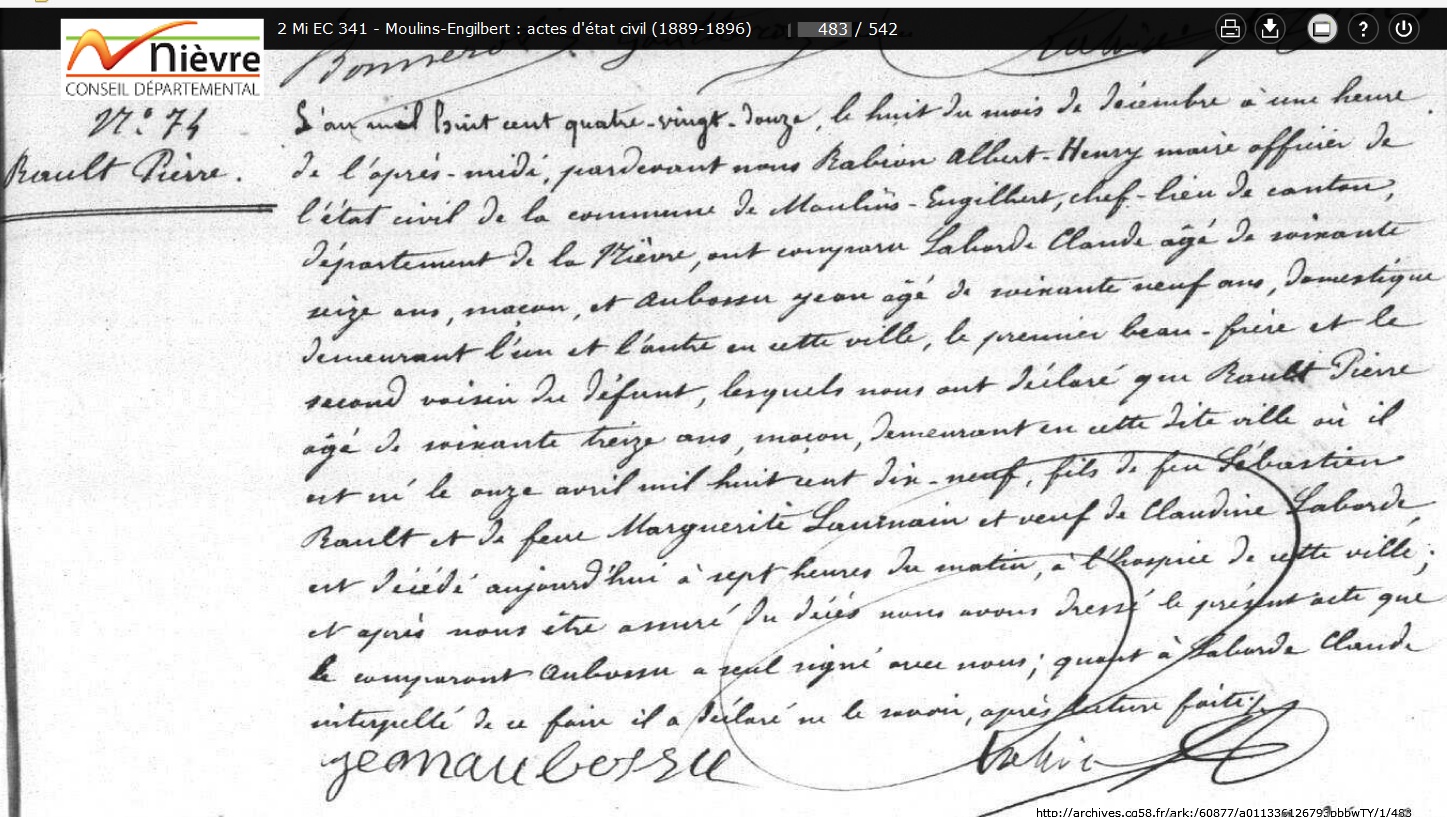 2 Mi EC 341 - Moulins-Engilbert : actes d'état civil (1889-1896)
483 / 542
Nièvre
CONSEIL DÉPARTEMENTAL
N.° 74
Rault Pierre.
L'an mil huit cent quatre-vingt-douze, le huit du mois de décembre à une heure
de l'après-midi, pardevant nous Rabion Albert-Henry maire officier de
l'état civil de la commune de Moulins-Engilbert, chef-lieu de canton,
département de la Nièvre, ont comparu Laborde Claude âgé de soixante
seize ans, maçon, et Aubossu Jean âgé de soixante neuf ans, domestique
demeurant l'un et l'autre en cette ville, le premier beau-frère et le
second voisin du défunt, lesquels nous ont déclaré que Rault Pierre
âgé de soixante treize ans, maçon, demeurant en cette dite ville où il
est né le onze avril mil huit cent dix-neuf, fils de feu Sébastien
Rault et de feue Marguerite et veuf de Claudine Laborde,
est décédé aujourd'hui à sept heures du matin, à l'hospice de cette ville;
et après nous être assuré du décès nous avons dressé le présent acte que
le comparant Aubossu a seul signé avec nous; quant à Laborde Claude
interpellé de ce faire il a déclaré ne le savoir, après lecture faite.
jean aubossu
Rabion
http://archives.cg58.fr/ark:/60877/